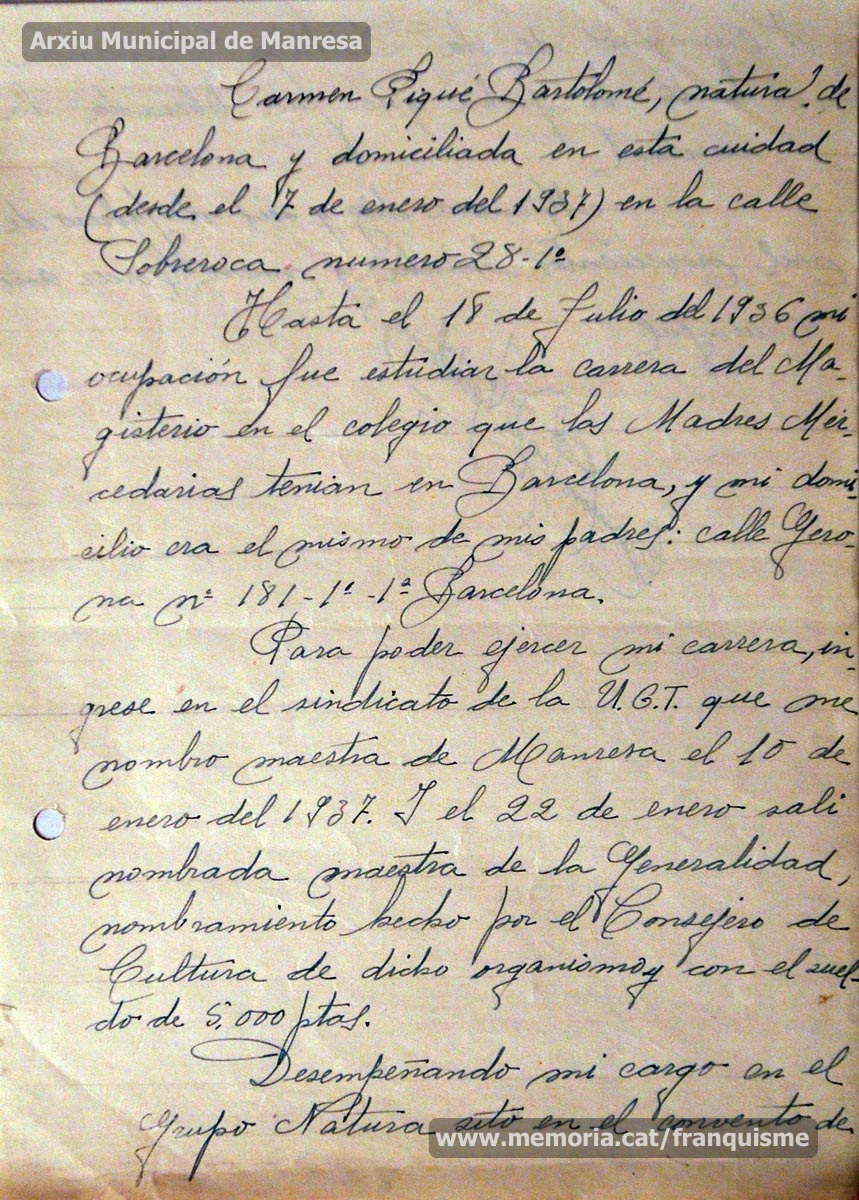 Arxiu Municipal de Manresa
Carmen Piqué Bartolomé, natural de
Barcelona y domiciliada en esta cuidad
(desde el 7 de enero del 1937) en la calle
Sobreroca numero 28-1º
Hasta el 18 de Julio del 1936 mi
ocupación fue estudiar la carrera del Ma-
gisterio en el colegio que las Madres Mer-
cedarias tenian en Barcelona, y mi domi-
cilio era el mismo de mis padres: calle Gero-
na nº 181-1º-1ª Barcelona.
Para poder ejercer mi carrera, in-
grese en el sindicato de la U.G.T. que me
nombro maestra de Manresa el 10 de
enero del 1937. Y el 22 de enero sali
nombrada maestra de la Generalidad,
nombramiento hecho por el Consejero de
Cultura de dicho organismo y con el suel-
do de 5.000 ptas.
Desempeñando mi cargo en el
Grupo Natura sito en el convento de
www.memoria.cat/franquisme